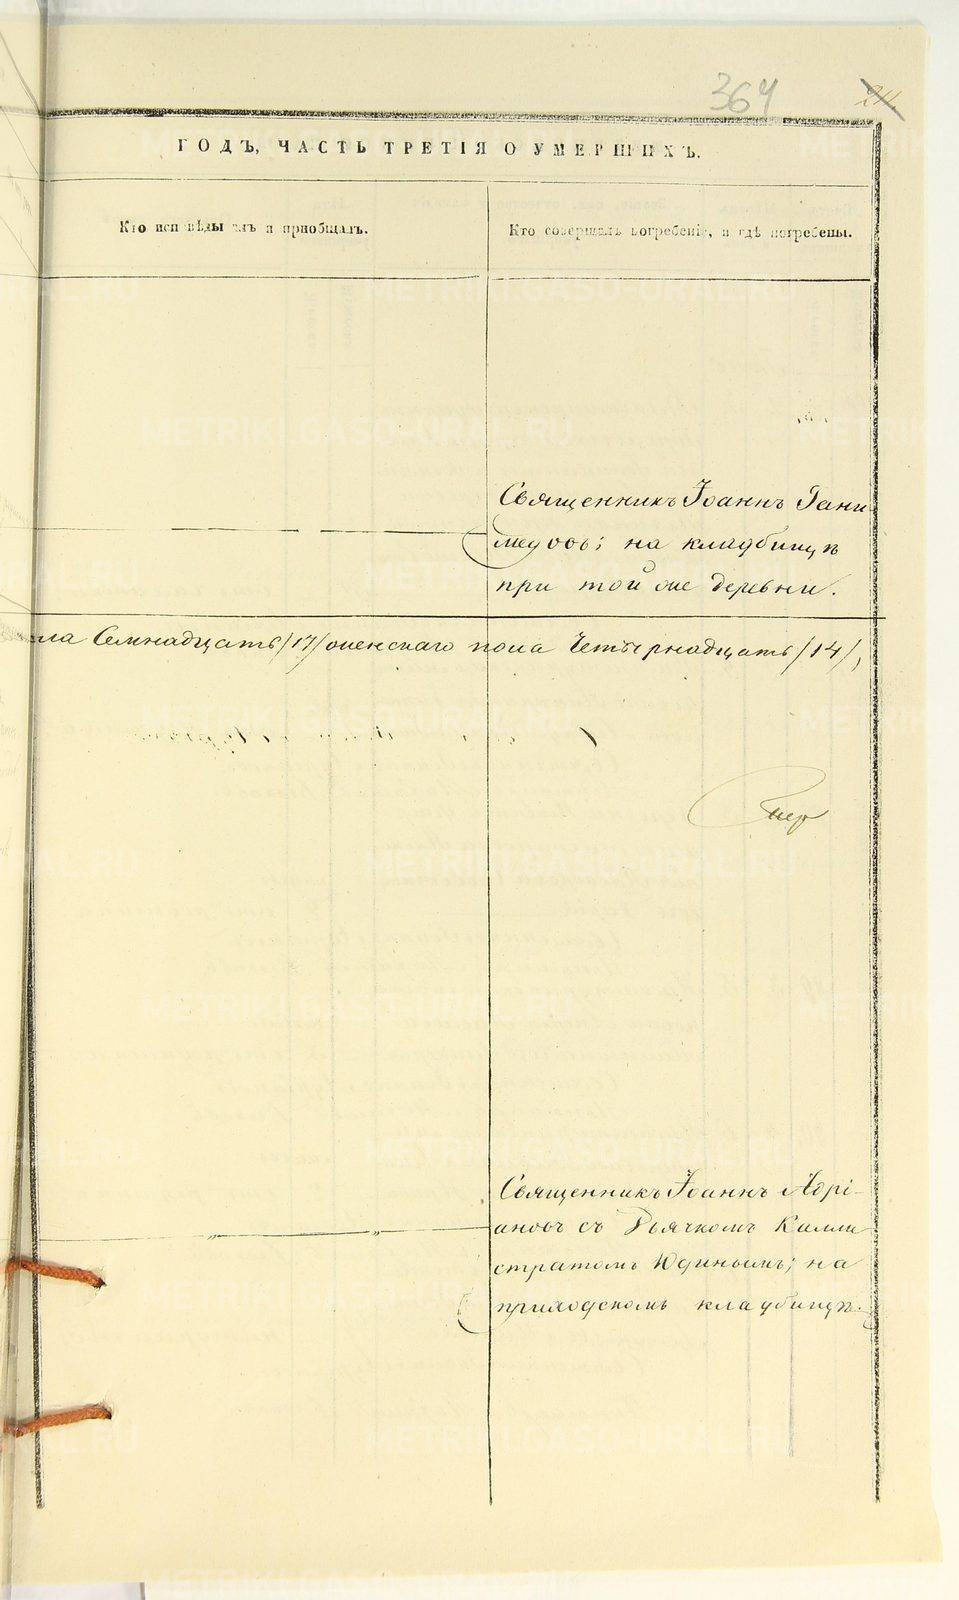 364
24.
ГОДЪ, ЧАСТЬ ТРЕТІЯ О УМЕРШИХЪ.
Кто исповѣдывалъ и пріобщалъ.
Кто совершалъ погребеніе, и гдѣ погребены.
Священникъ Іоаннъ Гани-
медовъ; на кладбищѣ
при той же деревни.
ла Семнадцать /17/ женскаго пола Четырнадцать /14/,
Священникъ Іоаннъ Адрі-
ановъ съ Дьячкомъ Калли
стратомъ Юдинымъ; на
приходскомъ кладбищѣ.
METRIKI.GASO-URAL.RU